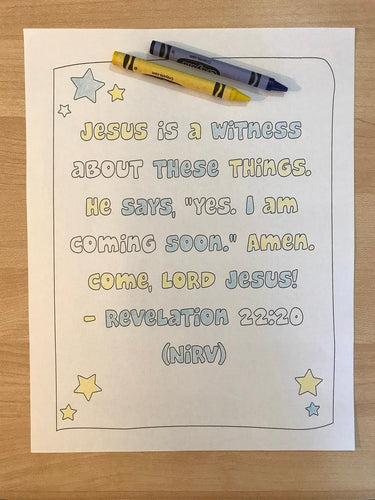 Jesus is a witness
about these things.
He says, "Yes. I am
coming soon." Amen.
Come, Lord Jesus!
- Revelation 22:20
(NIRV)